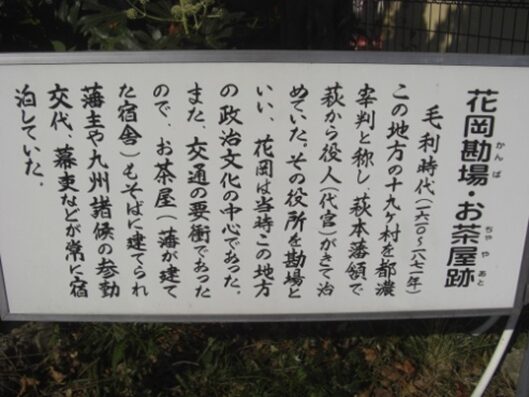 花岡勘場・お茶屋跡
かんば
ちゃやあと
毛利時代(一六一〇~一八七一年)
この地方の十九ヶ村を都濃
宰判と称し、萩本藩領で
萩から役人(代官)がきて治
めていた。その役所を勘場と
いい、花岡は当時この地方
の政治文化の中心であった。
また、交通の要衝であった
ので、お茶屋(藩が建て
た宿舎)もそばに建てられ
藩主や九州諸候の参勤
交代、幕吏などが常に宿
泊していた。